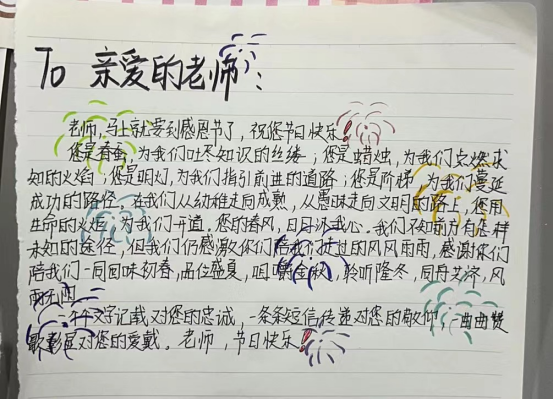 To 亲爱的老师:
老师,马上就要到感恩节了,祝您节日快乐!
您是春蚕,为我们吐尽知识的丝缕;您是蜡烛,为我们点燃求
知的火焰;您是明灯,为我们指引前进的道路;您是阶梯,为我们蔓延
成功的路径,在我们从幼稚走向成熟,从愚昧走向文明的路上,您用
生命的火炬,为我们开道。您的春风,日日沐我心。我们不知前方有怎样
未知的途径,但我们仍感激你们陪我们走过的风风雨雨,感谢你们
陪我们一同回味初春,品位盛夏,咀嚼金秋,聆听隆冬,同舟共济,风
雨无阻
一个个文字记载对您的忠诚,一条条短信传递对您的敬仰,一曲曲赞
歌彰显对您的爱戴。老师,节日快乐!